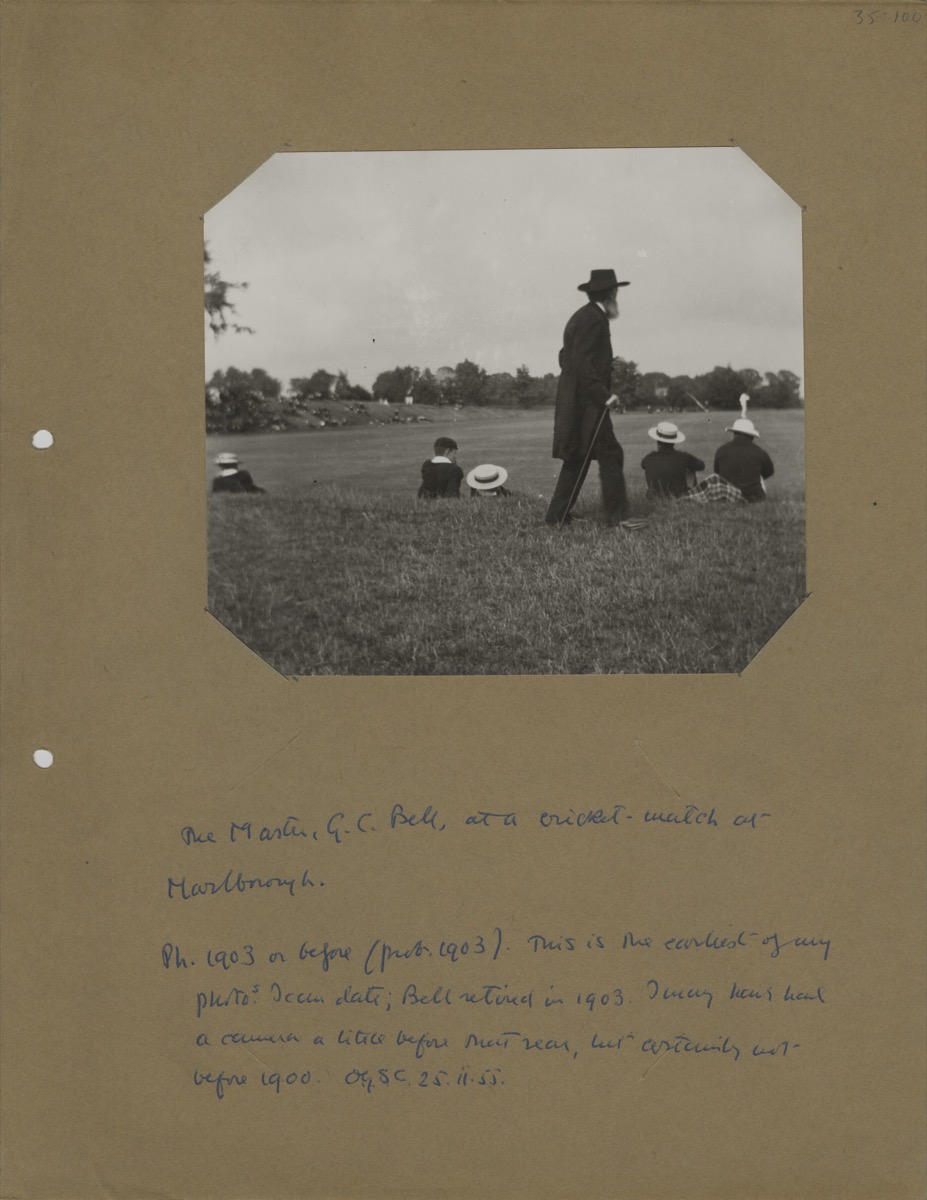 35.100
The Master, G. C. Bell, at a cricket-match at
Marlborough.
Ph. 1903 or before (prob. 1903). This is the earliest of my
photos. I can date; Bell retired in 1903. I may have had
a camera a little before that year, but certainly not
before 1900. O.G.S.C. 25.ii.55.